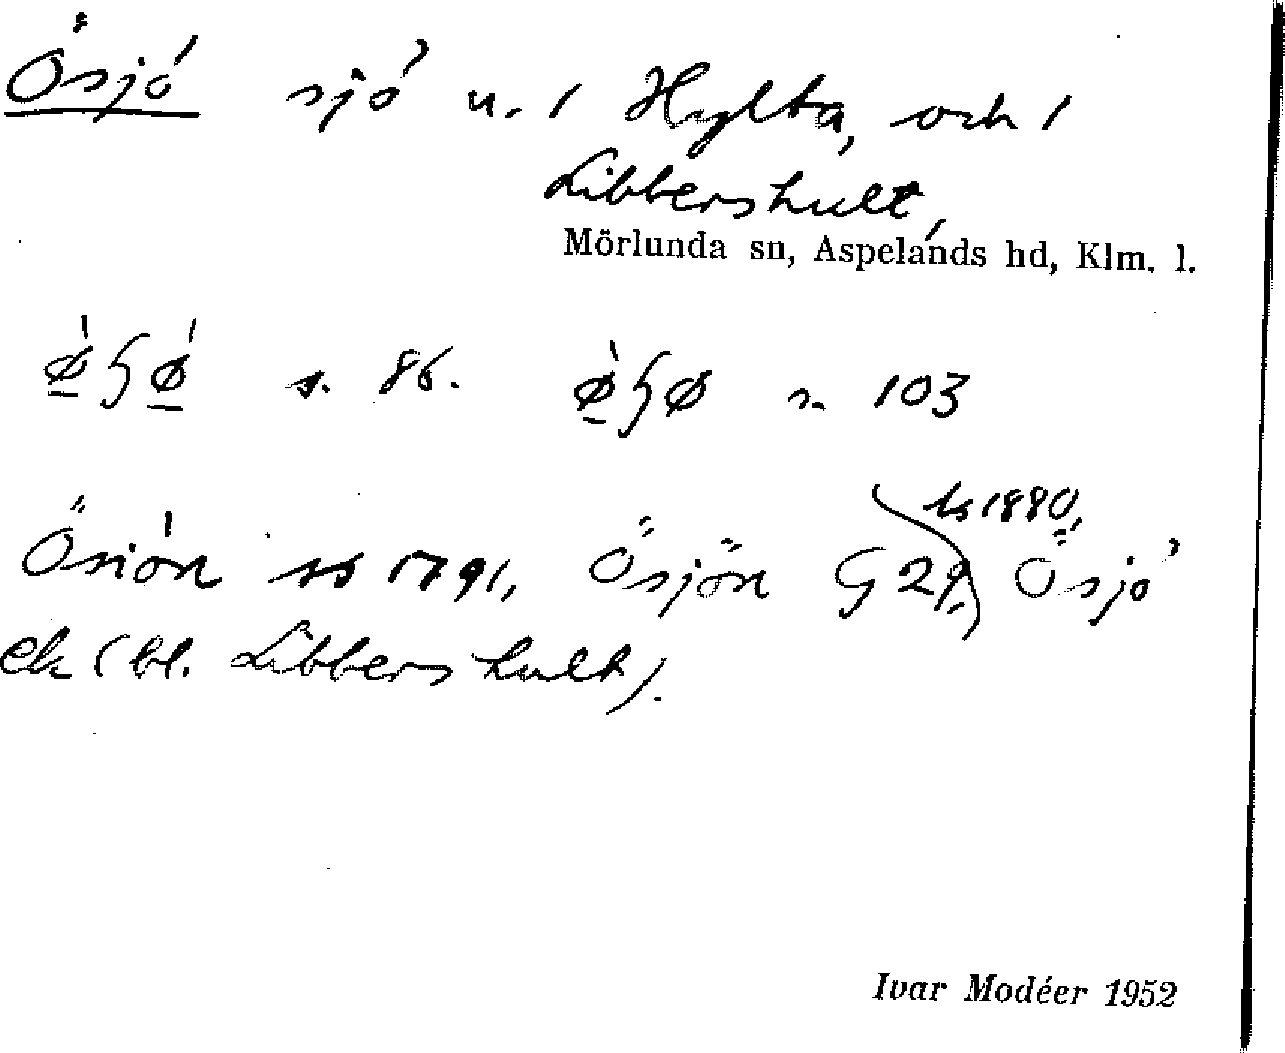 Ösjö sjö u. / Hylta, och /
Libbershult,
Mörlunda sn, Aspelands hd, Klm. l.
ø̠ʃø̠ s. 86. ø̠ʃø s. 103
Ösiön ss 1791, Ösjön G 29, ls 1880, Ösjö
ek (bl. Libbershult).
Ivar Modéer 1952